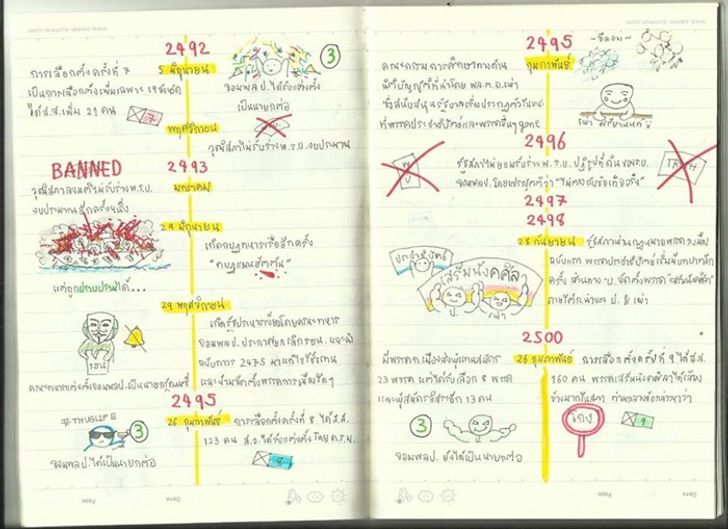 2492
การเลือกตั้งครั้งที่ 7
5 มิถุนายน
เป็นการเลือกตั้งเพิ่มเฉพาะ 19 จังหวัด
ได้ ส.ส. เพิ่ม 21 คน
7
จอมพล ป. ได้รับแต่งตั้ง
เป็นนายกต่อ
3
พฤศจิกายน
วุฒิสภาไม่รับร่าง พ.ร.บ. งบประมาณ
BANNED
2493
วุฒิสภาลงมติไม่รับร่าง พ.ร.บ.
งบประมาณอีกครั้งหนึ่ง
มกราคม
29 มิถุนายน
เกิดกบฏทหารเรืออีกครั้ง
"กบฏแมนฮัตตัน"
แต่ถูกปราบปรามได้...
29 พฤศจิกายน
เกิดรัฐประหารเงียบโดยคณะทหาร
จอมพล ป. ประกาศยกเลิก รธน. และนำ
ฉบับการ 2475 มาแก้ไขใช้แทน
คณะทหารแต่งตั้งจอมพล ป. เป็นนายกรัฐมนตรี
2495
#THUGLIFE
3
26 กุมภาพันธ์
การเลือกตั้งครั้งที่ 8 ได้ ส.ส.
123 คน ส.ว. ได้รับแต่งตั้งโดย ค.ร.ม.
8
จอมพล ป. ได้เป็นนายกต่อ
2495
กุมภาพันธ์
คณะกรรมการศึกษาทางด้าน
นิติบัญญัติที่นำโดย พล.ต.อ. เผ่า
ที่พรรคประชาธิปัตย์และพรรคอื่นๆ gone
เผ่า ศรียานนท์
2496
รัฐสภาไม่ยอมรับร่าง พ.ร.บ. ปฏิรูปที่ดินของ รบ.
2497
2498
28 กันยายน
ประชาธิปัตย์
เสรีมนังคศิลา
ป.
เผ่า
ครั้ง ส่วนทาง ป. จัดตั้งพรรค "เสรีมนังคศิลา"
ภายใต้การนำของ ป. & เผ่า
2500
มีพรรคการเมืองส่งผู้แทนสมัคร
23 พรรค แต่ได้รับเลือก 8 พรรค
และผู้สมัครอิสระอีก 13 คน
26 กุมภาพันธ์
การเลือกตั้งครั้งที่ 9 ได้ ส.ส.
160 คน พรรคเสรีมนังคศิลาได้เสียง
ข้างมากในสภา ท่ามกลางข้อกล่าวหาว่า
โกง
9
3
จอมพล ป. ยังได้เป็นนายกต่อ
Date
Page
Date
Page